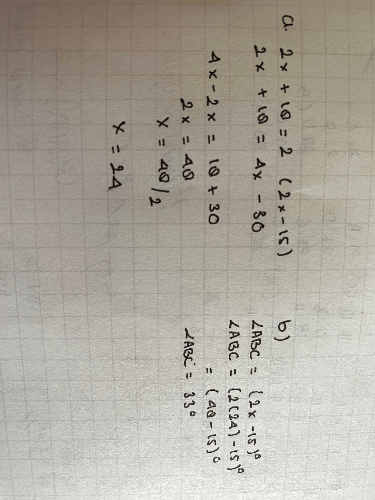 a. 2x + 18 = 2 (2x-15)
2x + 18 = 4x - 30
4x - 2x = 18 + 30
2x = 48
x = 48/2
x = 24
b)
∠ABC = (2x-15)°
∠ABC = (2(24)-15)°
= (48-15)°
∠ABC = 33°